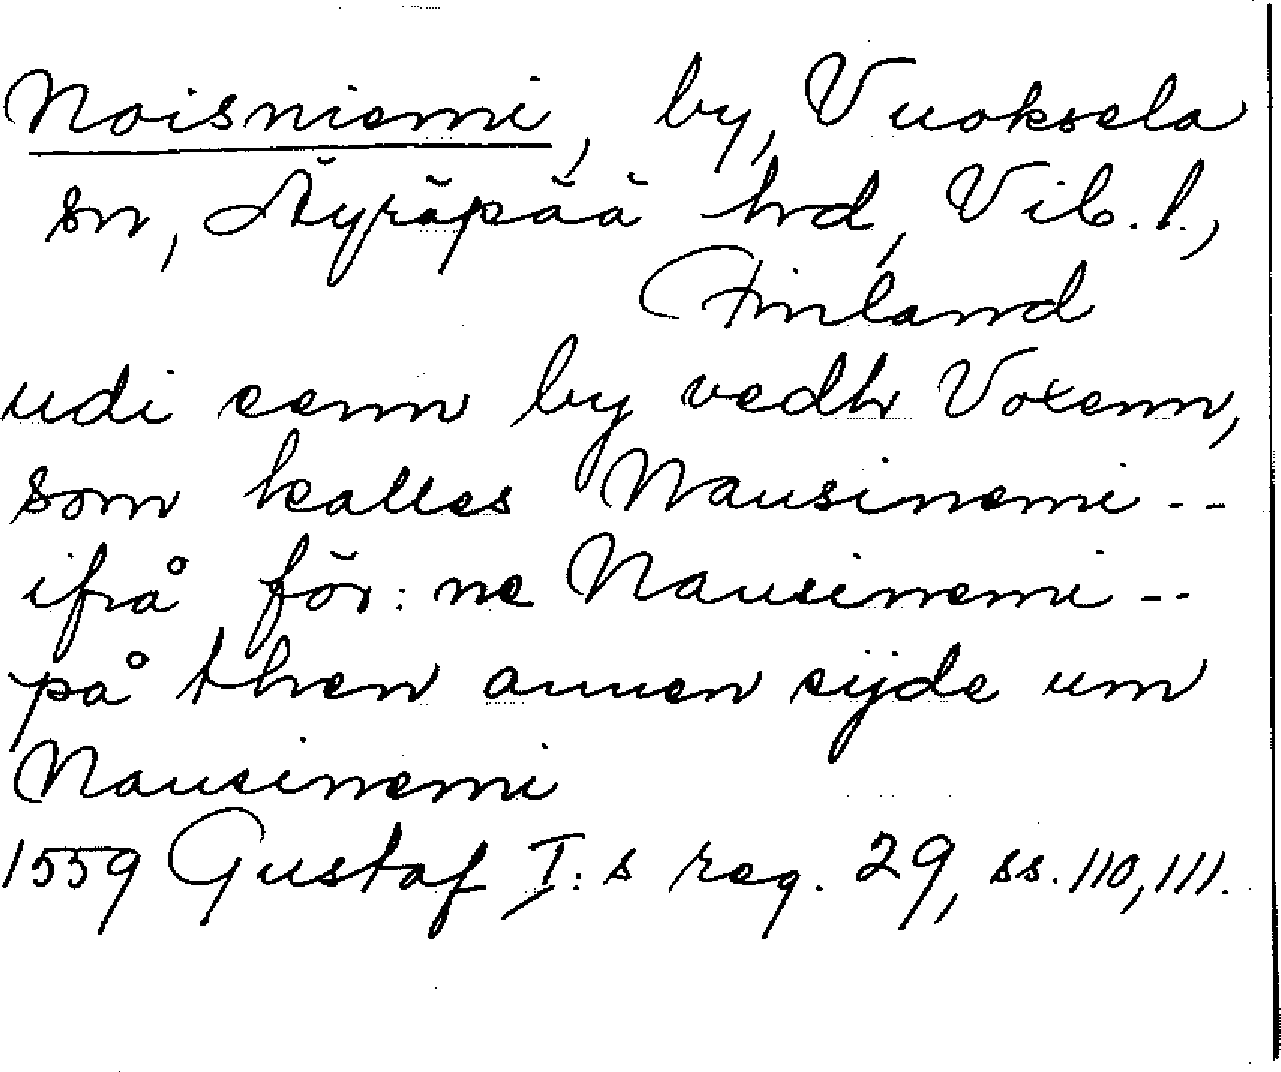 Noisniemi, by, Vuoksela
sn, Äyräpää hd, Vib. l.,
Finland
udi eenn by vedh Voxenn,
som kalles Nausinemi --
ifrå för: ne Nausinemi --
på then annen sijde um
Nausinemi
1559 Gustaf I:s reg. 29, ss. 110, 111.